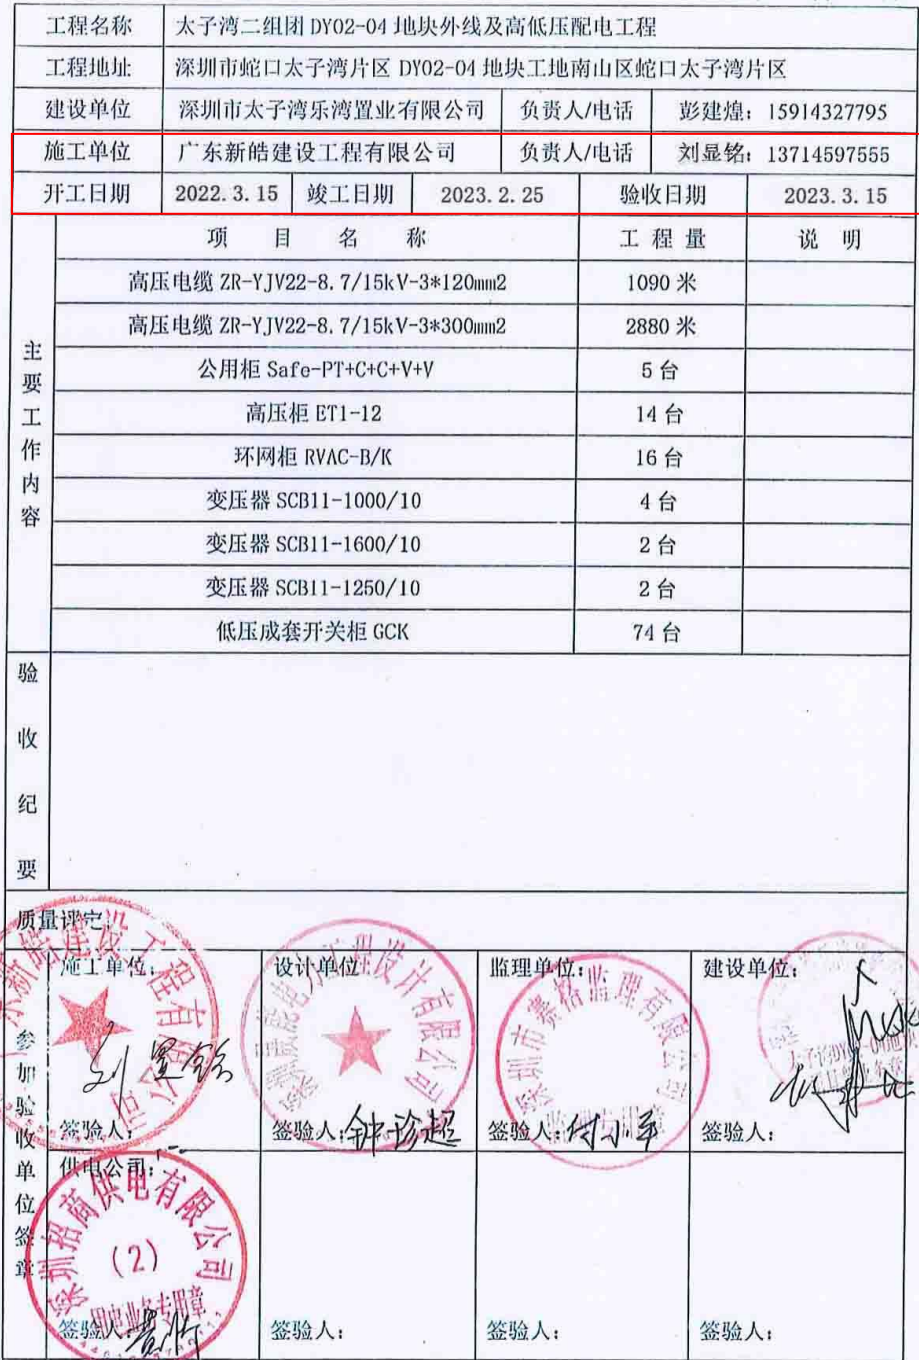 工程名称 太子湾二组团 DY02-04 地块外线及高低压配电工程
工程地址 深圳市蛇口太子湾片区 DY02-04 地块工地南山区蛇口太子湾片区
建设单位 深圳市太子湾乐湾置业有限公司 负责人/电话 彭建煌：15914327795
施工单位 广东新皓建设工程有限公司 负责人/电话 刘显铭：13714597555
开工日期 2022.3.15 竣工日期 2023.2.25 验收日期 2023.3.15
主要工作内容
项目名称 工程量 说明
高压电缆 ZR-YJV22-8.7/15kV-3*120mm2 1090 米
高压电缆 ZR-YJV22-8.7/15kV-3*300mm2 2880 米
公用柜 Safe-PT+C+C+V+V 5 台
高压柜 ET1-12 14 台
环网柜 RVAC-B/K 16 台
变压器 SCB11-1000/10 4 台
变压器 SCB11-1600/10 2 台
变压器 SCB11-1250/10 2 台
低压成套开关柜 GCK 74 台
验收纪要
质量评定：
参加验收单位签章
施工单位： 设计单位 监理单位： 建设单位：
新皓建设工程有限公司
工程设计有限公司
深圳市赛格监理有限公司
刘显铭
签验人： 签验人：钟珍超 签验人：付小平 签验人：
供电公司：
深圳招商供电有限公司
(2)
签验人： 签验人： 签验人： 签验人：